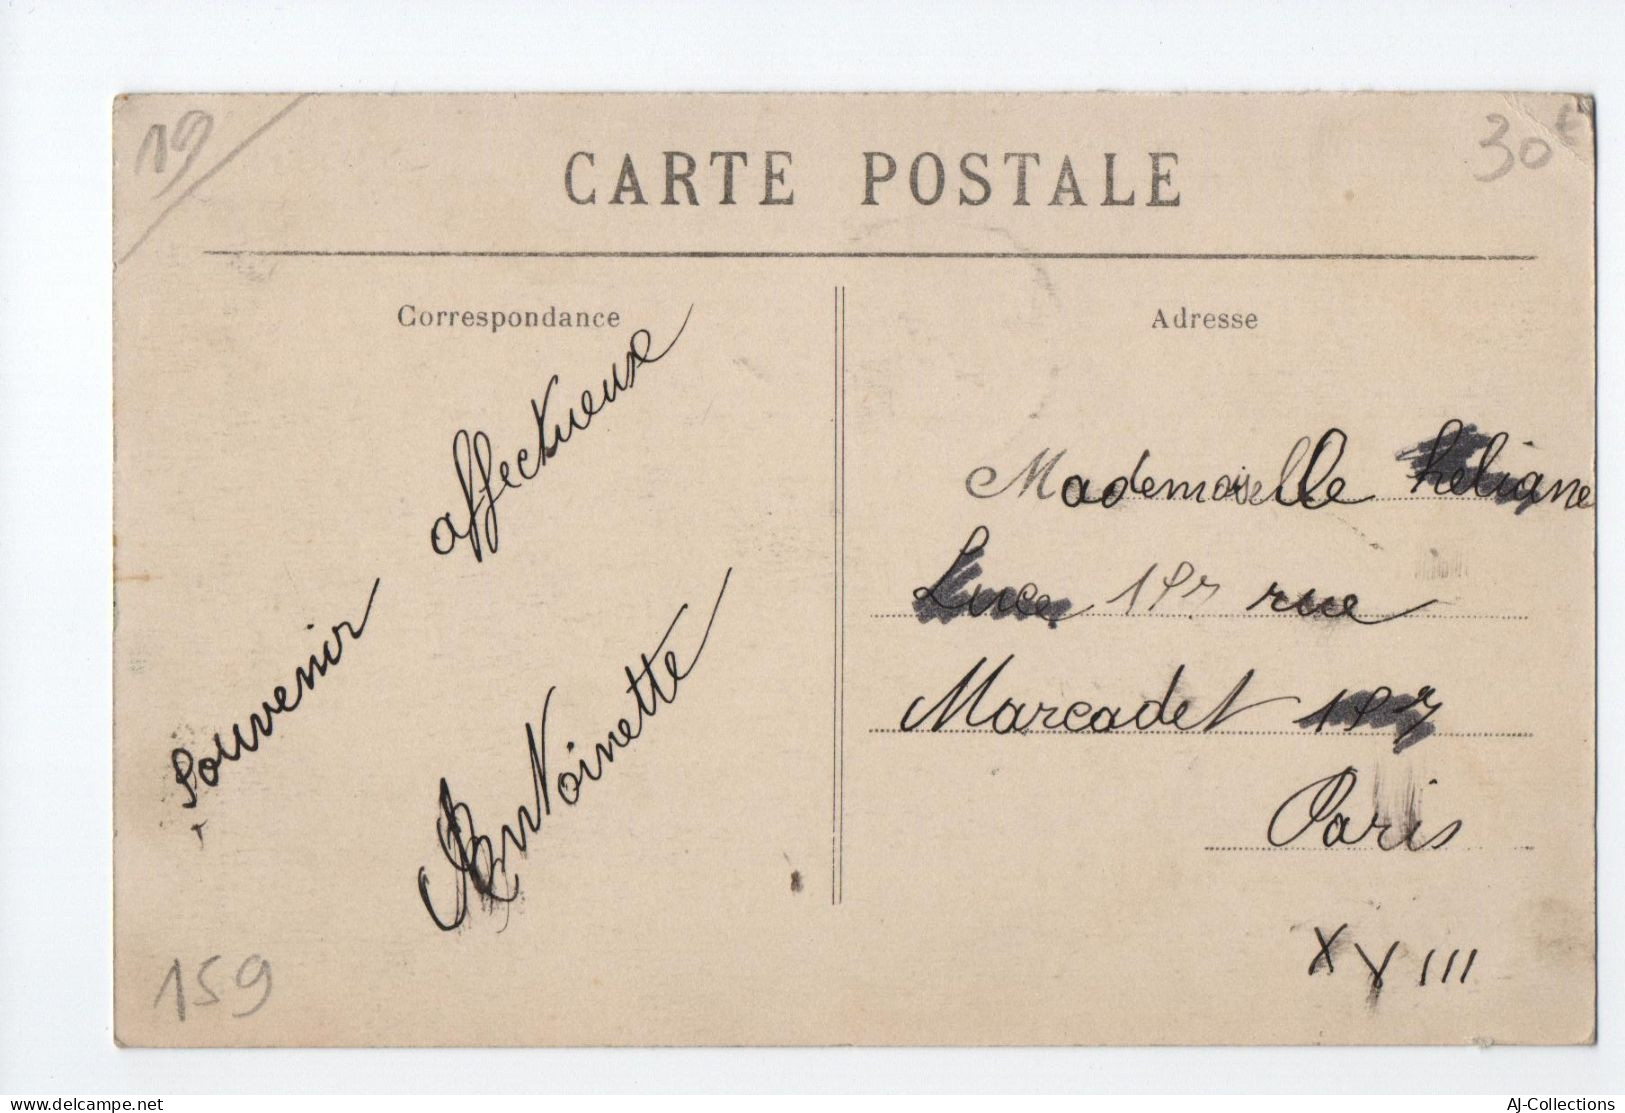 19
30€
CARTE POSTALE
Correspondance
Adresse
Souvenir affectueux
Antoinette
Mademoiselle Héliane
Luce 197 rue
Marcadet 197
Paris
XVIII
159
delcampe.net
AJ-Collections